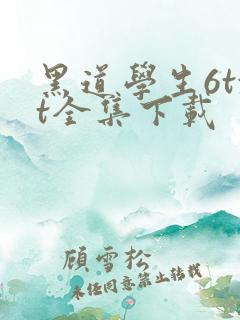 黑道學生6tx
t全集下載
顧雪松
未经同意禁止转载